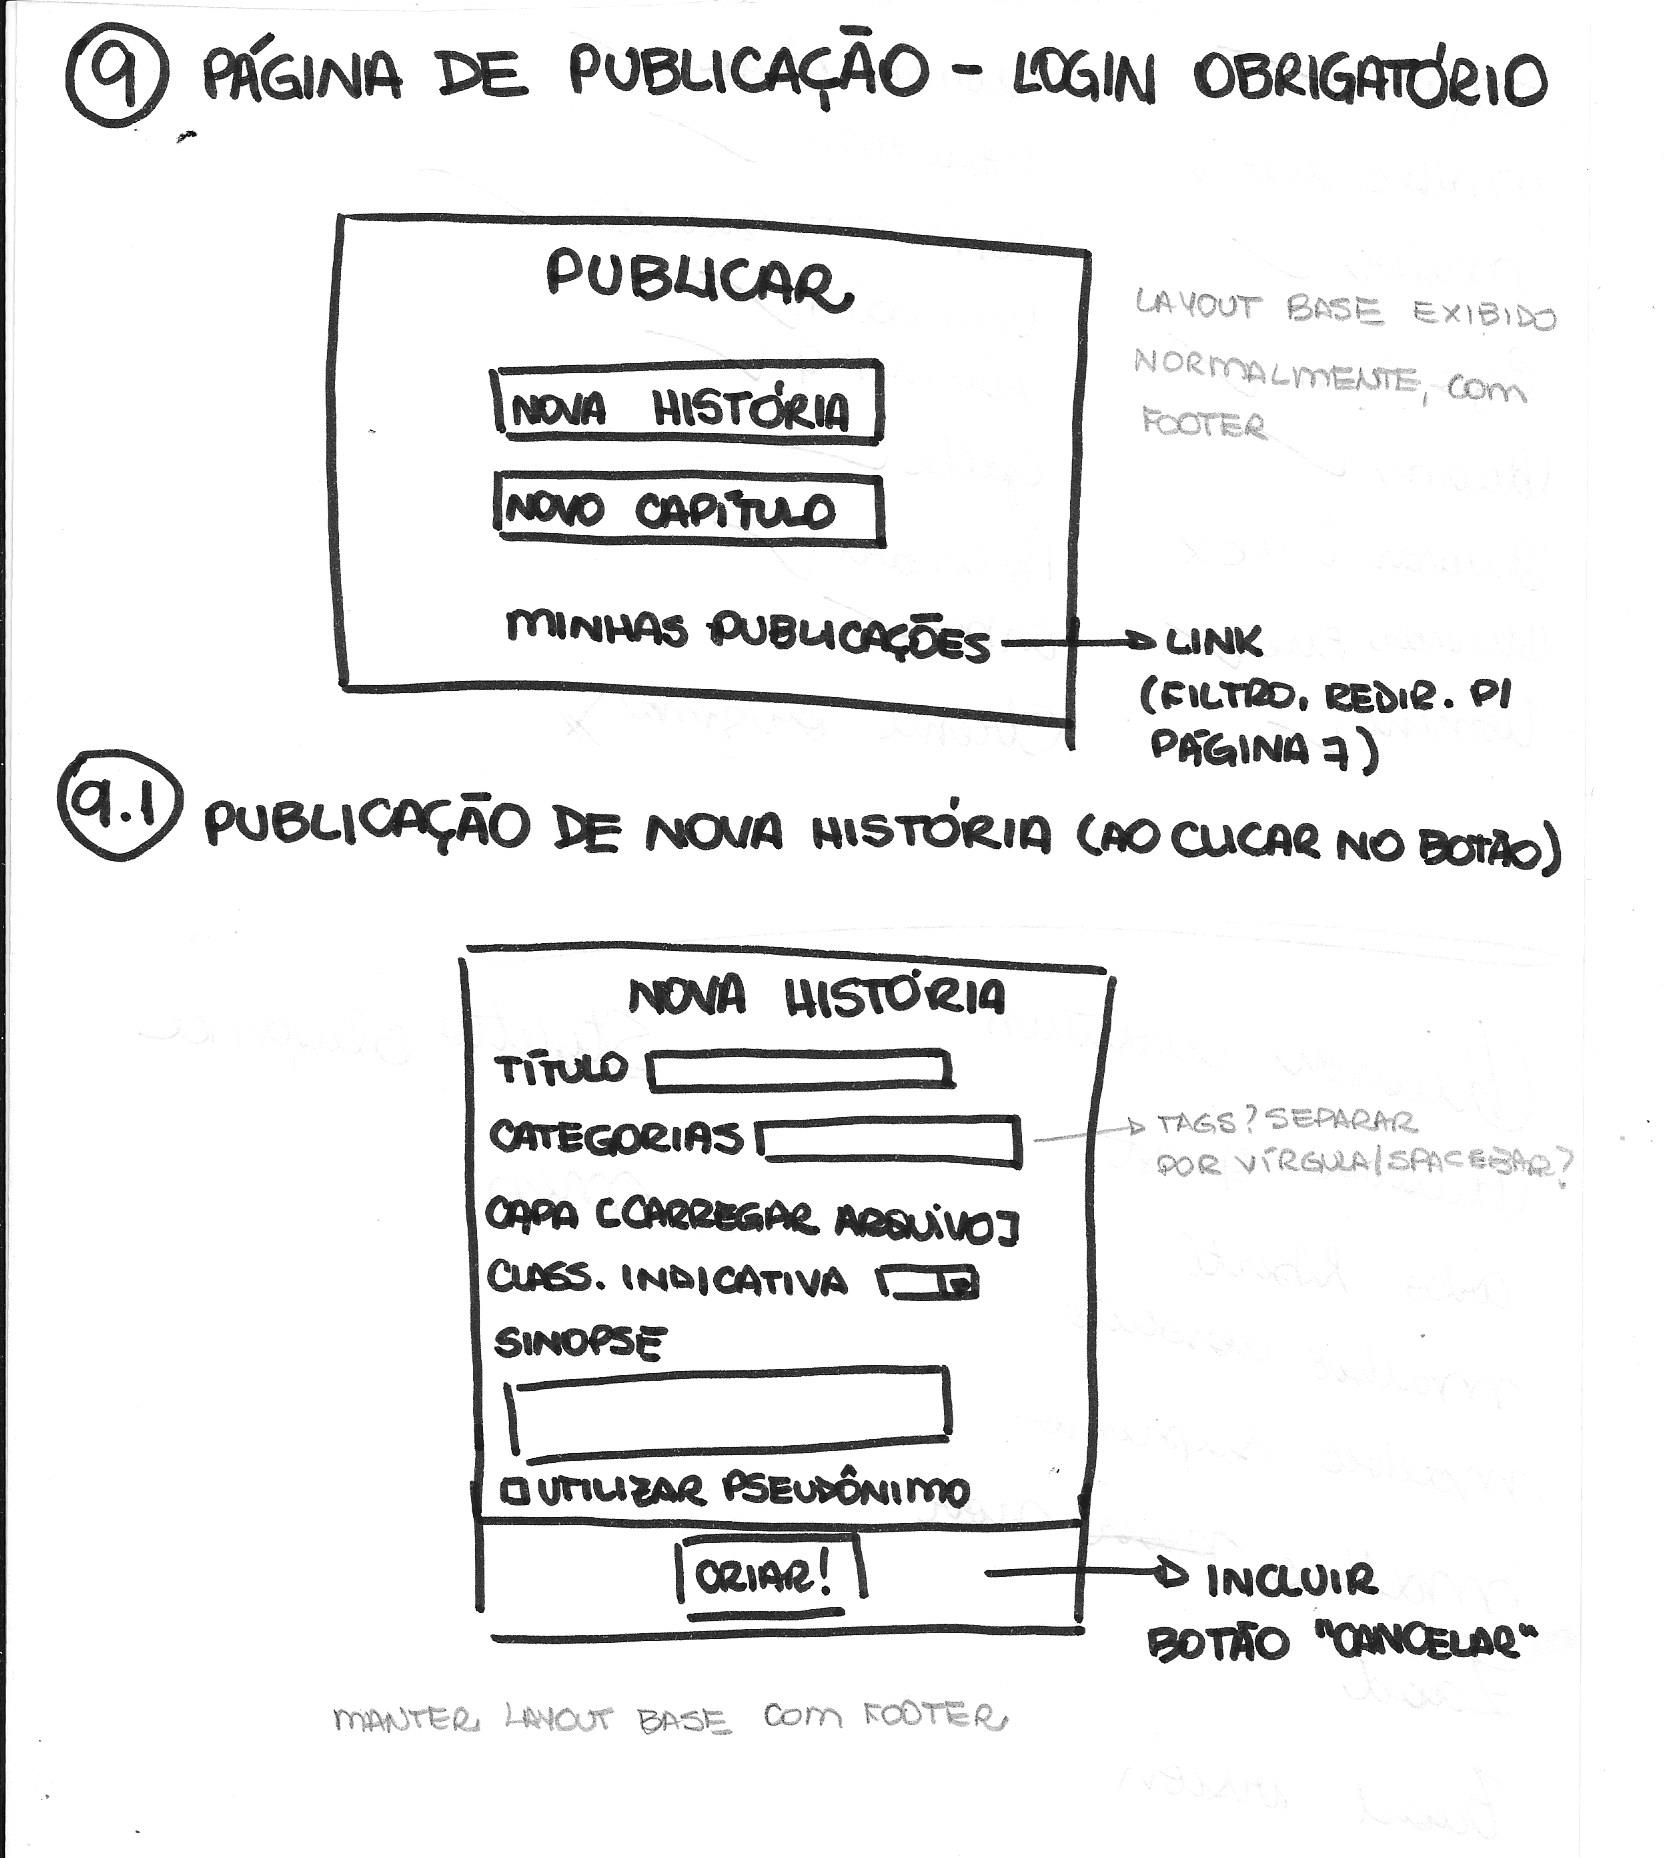 9 PÁGINA DE PUBLICAÇÃO - LOGIN OBRIGATÓRIO
PUBLICAR
NOVA HISTÓRIA
NOVO CAPÍTULO
MINHAS PUBLICAÇÕES
LAYOUT BASE EXIBIDO
NORMALMENTE, COM
FOOTER
LINK
(FILTRO, REDIR. P/
PÁGINA 7)
9.1 PUBLICAÇÃO DE NOVA HISTÓRIA (AO CLICAR NO BOTÃO)
NOVA HISTÓRIA
TÍTULO
CATEGORIAS
TAGS? SEPARAR
POR VÍRGULA/SPACEBAR?
CAPA [CARREGAR ARQUIVO]
CLASS. INDICATIVA
SINOPSE
UTILIZAR PSEUDÔNIMO
CRIAR!
INCLUIR
BOTÃO "CANCELAR"
MANTER LAYOUT BASE COM FOOTER